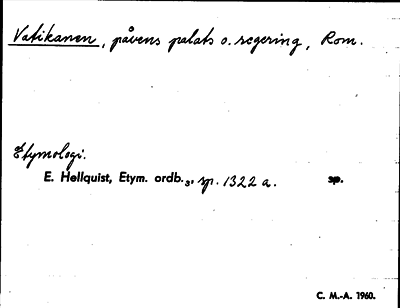 Vatikanen, påvens palats o. regering, Rom.
Etymologi.
E. Hellquist, Etym. ordb.₃, sp. 1322 a. sp.
C. M.-A. 1960.